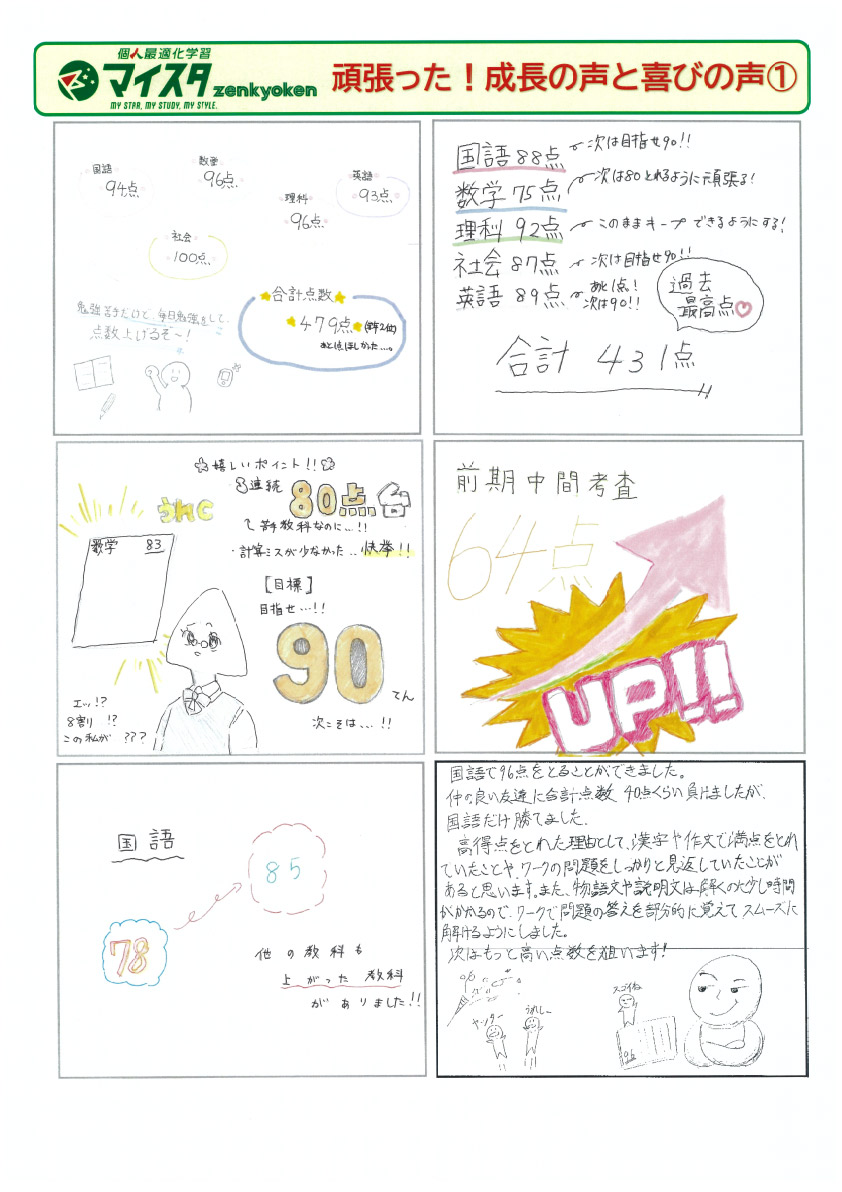 個人最適化学習
マイスタ zenkyoken
MY STAR, MY STUDY, MY STYLE.
頑張った！成長の声と喜びの声①
国語
94点
数学
96点
英語
93点
理科
96点
社会
100点
合計点数
479点(学年2位)
あと1点ほしかった…。
勉強苦手だけど、毎日勉強をして、
点数上げるぞ～！
国語 88点 次は目指せ90!!
数学 75点 次は80とれるように頑張る!
理科 92点 このままキープできるようにする!
社会 87点 次は目指せ90!!
英語 89点 あと1点! 次は90!!
過去
最高点
合計 431点
☆嬉しいポイント!!☆
3連続 80点台
苦手教科なのに…!!
・計算ミスが少なかった…快挙!!
数学 83
[目標]
目指せ…!!
90
てん
次こそは…!!
エッ!?
8割り !?
この私が ???
前期中間考査
64点
UP!!
国語
78
85
他の教科も
上がった教科
がありました!!
国語で96点をとることができました。
仲の良い友達に合計点数 40点くらい負けましたが、
国語だけ勝てました。
高得点をとれた理由として、漢字や作文で満点をとれ
ていたことや、ワークの問題をしっかりと見返していたことが
あると思います。また、物語文や説明文は解くの少し時間
がかかるので、ワークで問題の答えを部分的に覚えてスムーズに
解けるようにしました。
次はもっと高い点数を狙います!
96
ヤッター
うれしー
スゴイね
96